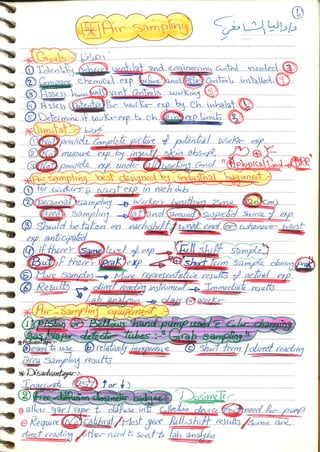 ①
* Air sampling
د/داليا الشافعي
* Goals:-
① Identify where ventilat and engineering control needed
② Compare chemical exp. before and after controls installed.
③ Assess how well vent. controls working
④ Assess potential for worker exp. by ch. inhalat.
⑤ Determine if worker exp. to ch. exp. limits
* limitat:-
① Not provide complete picture of potential worker exp.
② Not measure exp by ingest/skin absorpt
③ Not provide exp. under all working cond
* Air sampling best designed by industrial hygienist:-
① for workers @ worst exp. in each job.
② personal sampling → Worker's breathing zone (20 cm)
area sampling → at and around suspected source of exp.
③ Should be taken on each shift/weekend or whenever worst
exp anticipated
④ if there's Same level of exp → Full shift Sample
But if there's peak exp → short term Sample during peak
⑤ More samples → More representative results of actual exp
⑥ Results → direct reading instrument → Immediate results
Lab analysis → days or weeks.
* Air-Sampling equipment:-
① piston or Bellows hand pump used @ color changing
gas/vapor detector tubes:- "Grab sampling"
Advantages:
ⓐ easy to use ⓑ relatively inexpensive ⓒ Short term/direct reading
area sampling results
* Disadvantage:-
Inaccurate 25% (↑ or ↓)
② free-diffusion dosimeter badges: Dosimeter
allow gas/vapor to diffuse into Collection device no need for pump
Require No Calibrat/Most give full-shift results/some are
direct reading/other need to sent to lab analysis